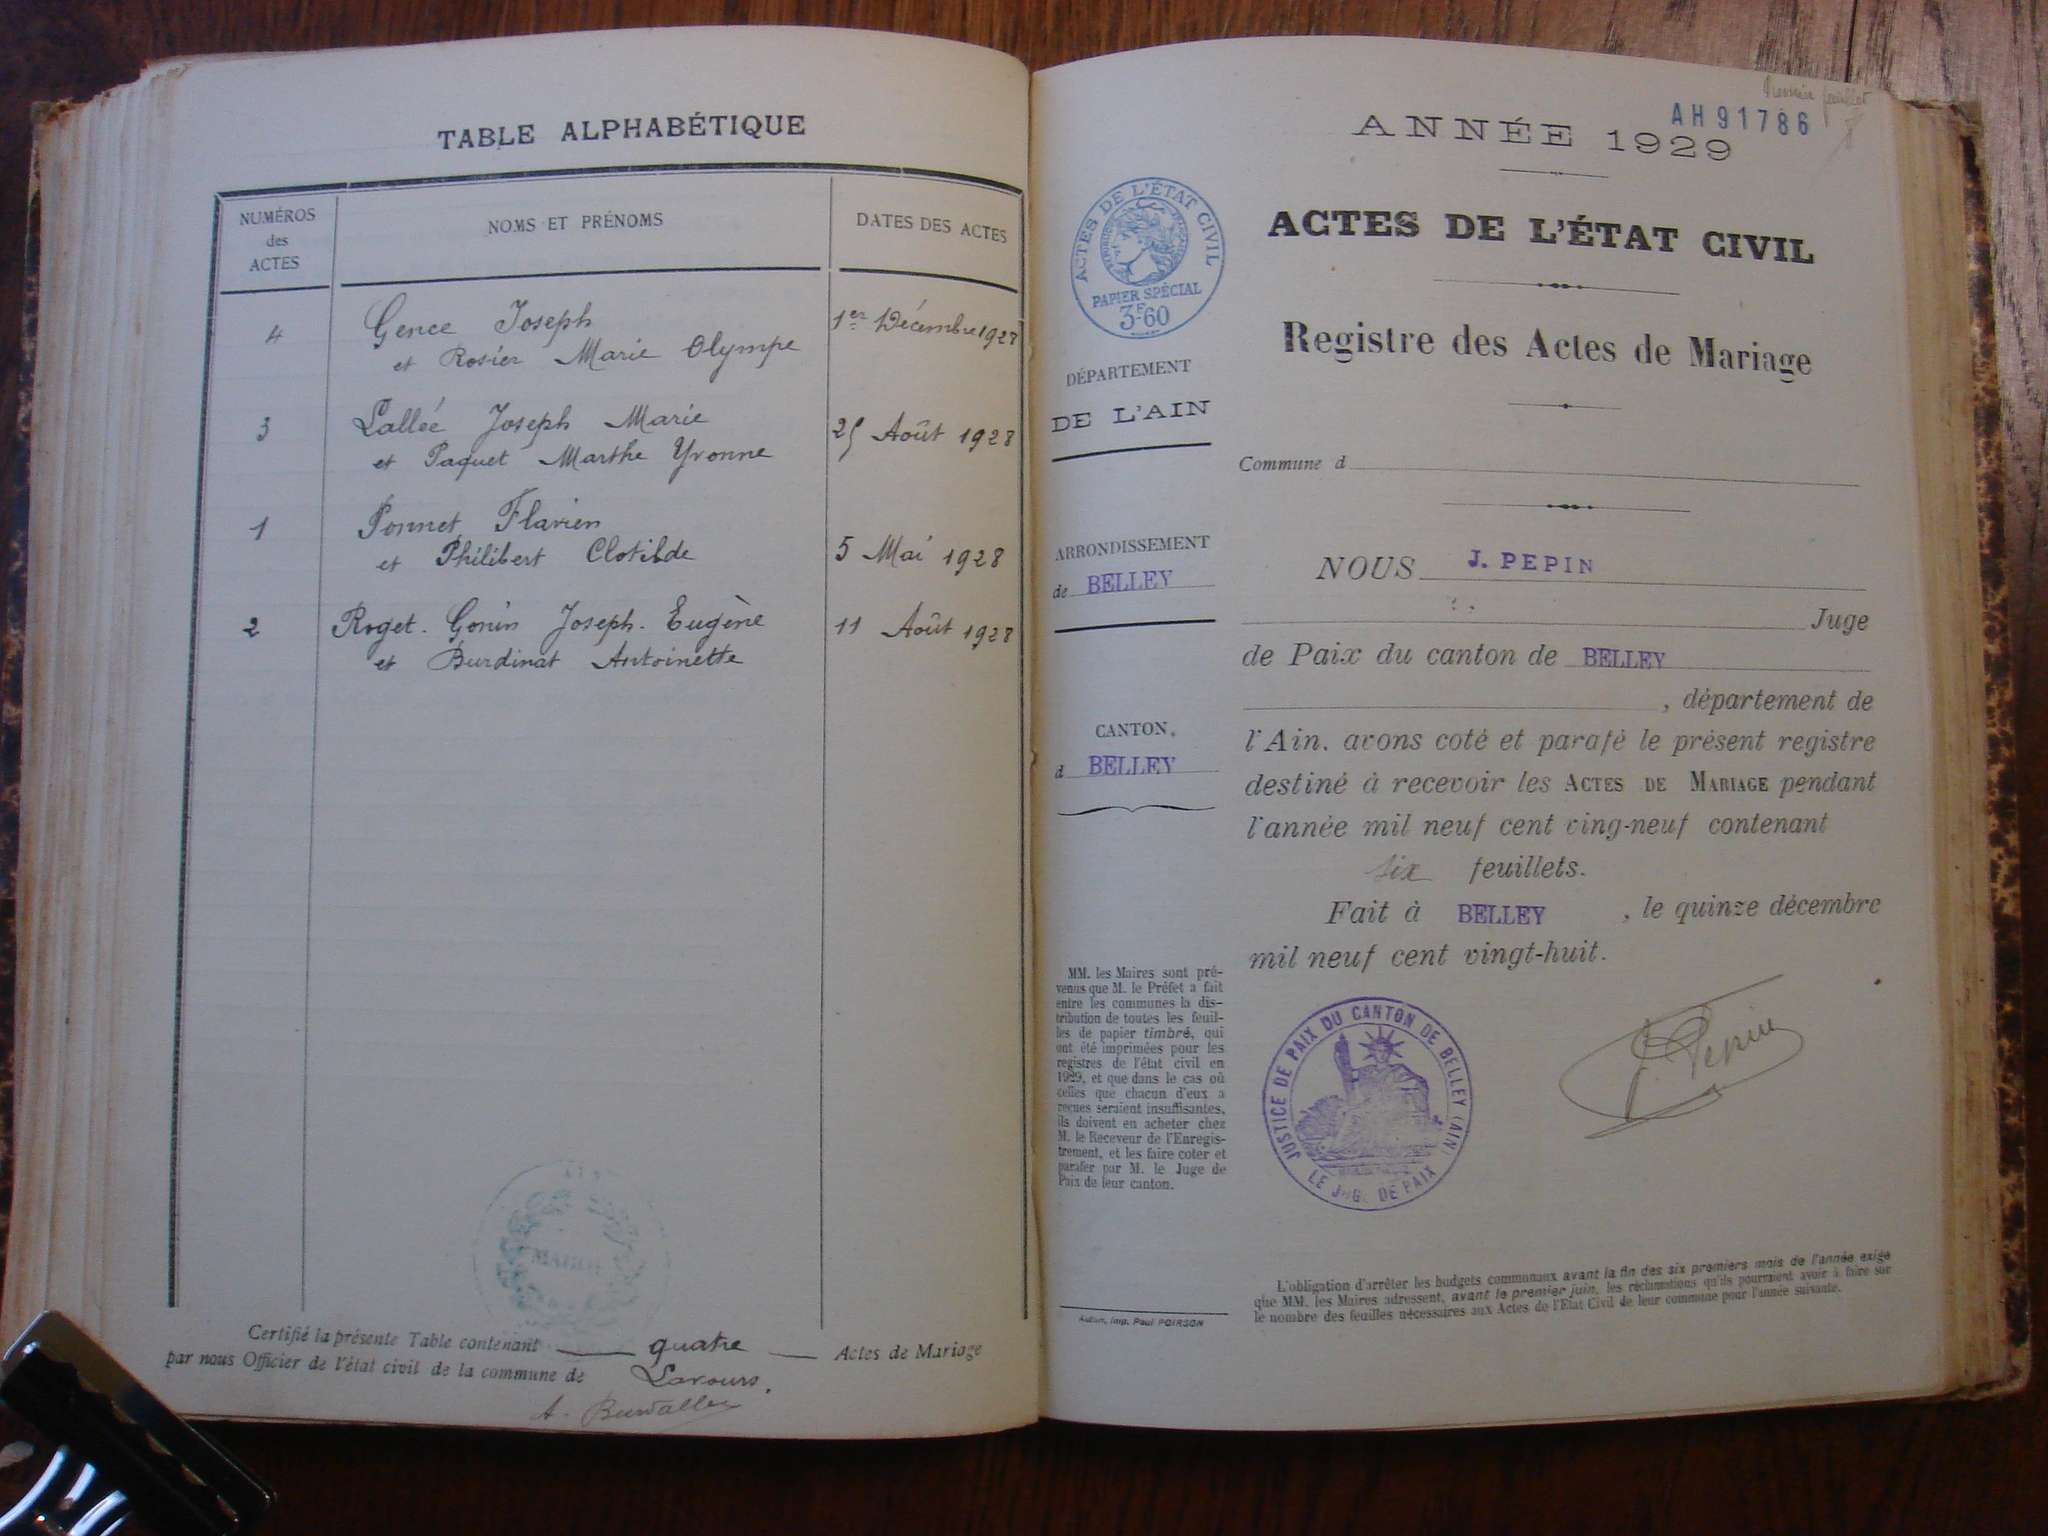 TABLE ALPHABÉTIQUE
NUMÉROS
des
ACTES
NOMS ET PRÉNOMS
DATES DES ACTES
4
Gence Joseph
1er Décembre 1928
et Rosier Marie Olympe
3
Lallée Joseph Marie
25 Août 1928
et Paquet Marthe Yvonne
1
Ponnet Flavien
et Philibert Clotilde
5 Mai 1928
2
Roget-Gonin Joseph-Eugène
11 Août 1928
et Burdinat Antoinette
MAIRIE
Certifié la présente Table contenant quatre Actes de Mariage
par nous Officier de l'état civil de la commune de Lavours.
feuillet
AH91786
ANNÉE 1929
ACTES DE L'ÉTAT CIVIL
PAPIER SPÉCIAL
3F60
ACTES DE L'ÉTAT CIVIL
Registre des Actes de Mariage
DÉPARTEMENT
DE L'AIN
Commune d
ARRONDISSEMENT
de BELLEY
CANTON
d BELLEY
NOUS J. PEPIN
Juge
de Paix du canton de BELLEY
, département de
l'Ain, avons coté et parafé le présent registre
destiné à recevoir les ACTES DE MARIAGE pendant
l'année mil neuf cent ving-neuf contenant
six feuillets.
Fait à BELLEY, le quinze décembre
mil neuf cent vingt-huit.
MM. les Maires sont pré-
venus que M. le Préfet a fait
entre les communes la dis-
tribution de toutes les feuil-
les de papier timbré, qui
ont été imprimées pour les
registres de l'état civil en
1929, et que dans le cas où
celles que chacun d'eux a
reçues seraient insuffisantes,
ils doivent en acheter chez
M. le Receveur de l'Enregis-
trement, et les faire coter et
parafer par M. le Juge de
Paix de leur canton.
JUSTICE DE PAIX DU CANTON DE BELLEY (AIN)
LE JUGE DE PAIX
J. Pepin
Autun, Imp. Paul POIRSON
L'obligation d'arrêter les budgets communaux avant la fin des six premiers mois de l'année exige
que MM. les Maires adressent, avant le premier juin, les réclamations qu'ils pourraient avoir à faire sur
le nombre des feuilles nécessaires aux Actes de l'Etat Civil de leur commune pour l'année suivante.